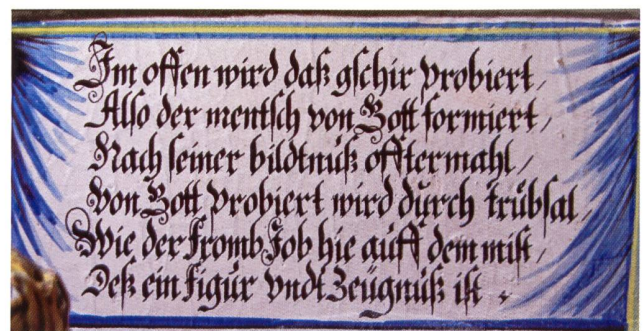 Im offen wird daß gschir probiert,
Also der mentsch von Gott formiert,
Nach seiner bildtnuß offtermahl,
von Gott probiert wird durch trübsal,
Wie der fromb Job hie auff dem mist,
Deß ein figur vndt Zeügnuß ist.